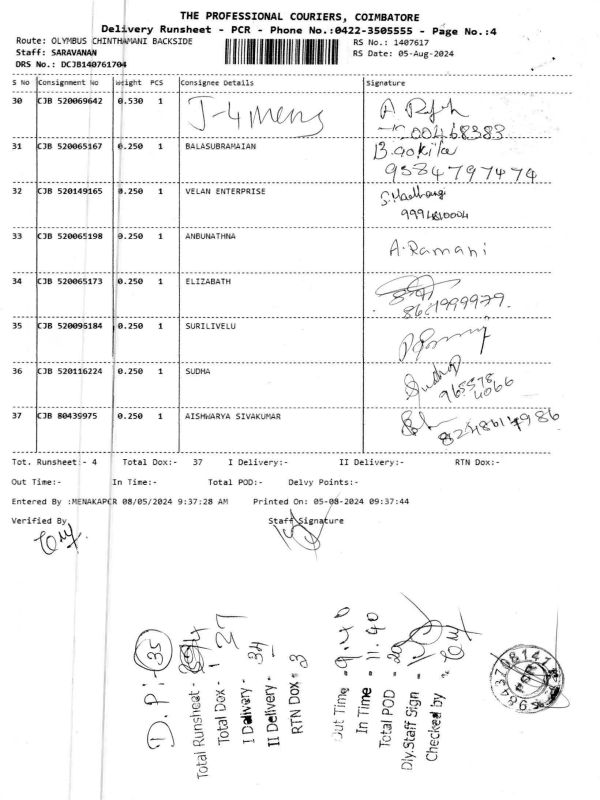 THE PROFESSIONAL COURIERS, COIMBATORE
Delivery Runsheet - PCR - Phone No.:0422-3505555 - Page No.:4
Route: OLYMBUS CHINTHAMANI BACKSIDE RS No.: 1407617
Staff: SARAVANAN RS Date: 05-Aug-2024
DRS No.: DCJB140761704
S No Consignment No Weight PCS Consignee Details Signature
30 CJB 520069642 0.530 1 J-4 Mens
31 CJB 520065167 0.250 1 BALASUBRAMAIAN B.Gokila
9584797474
32 CJB 520149165 0.250 1 VELAN ENTERPRISE
9994810004
33 CJB 520065198 0.250 1 ANBUNATHNA A. Ramani
34 CJB 520065173 0.250 1 ELIZABATH
35 CJB 520096184 0.250 1 SURILIVELU
36 CJB 520116224 0.250 1 SUDHA Sudha
965578
4066
37 CJB 80439975 0.250 1 AISHWARYA SIVAKUMAR
Tot. Runsheet:- 4 Total Dox:- 37 I Delivery:- II Delivery:- RTN Dox:-
Out Time:- In Time:- Total POD:- Delvy Points:-
Entered By :MENAKAPCR 08/05/2024 9:37:28 AM Printed On: 05-08-2024 09:37:44
Verified By Staff Signature
D.P:- 35
Total Runsheet -
Total Dox - 
I Delivery - 34
II Delivery -
RTN Dox - 3
Out Time - 9.40
In Time - 11.40
Total POD -
Dly.Staff Sign -
Checked by -